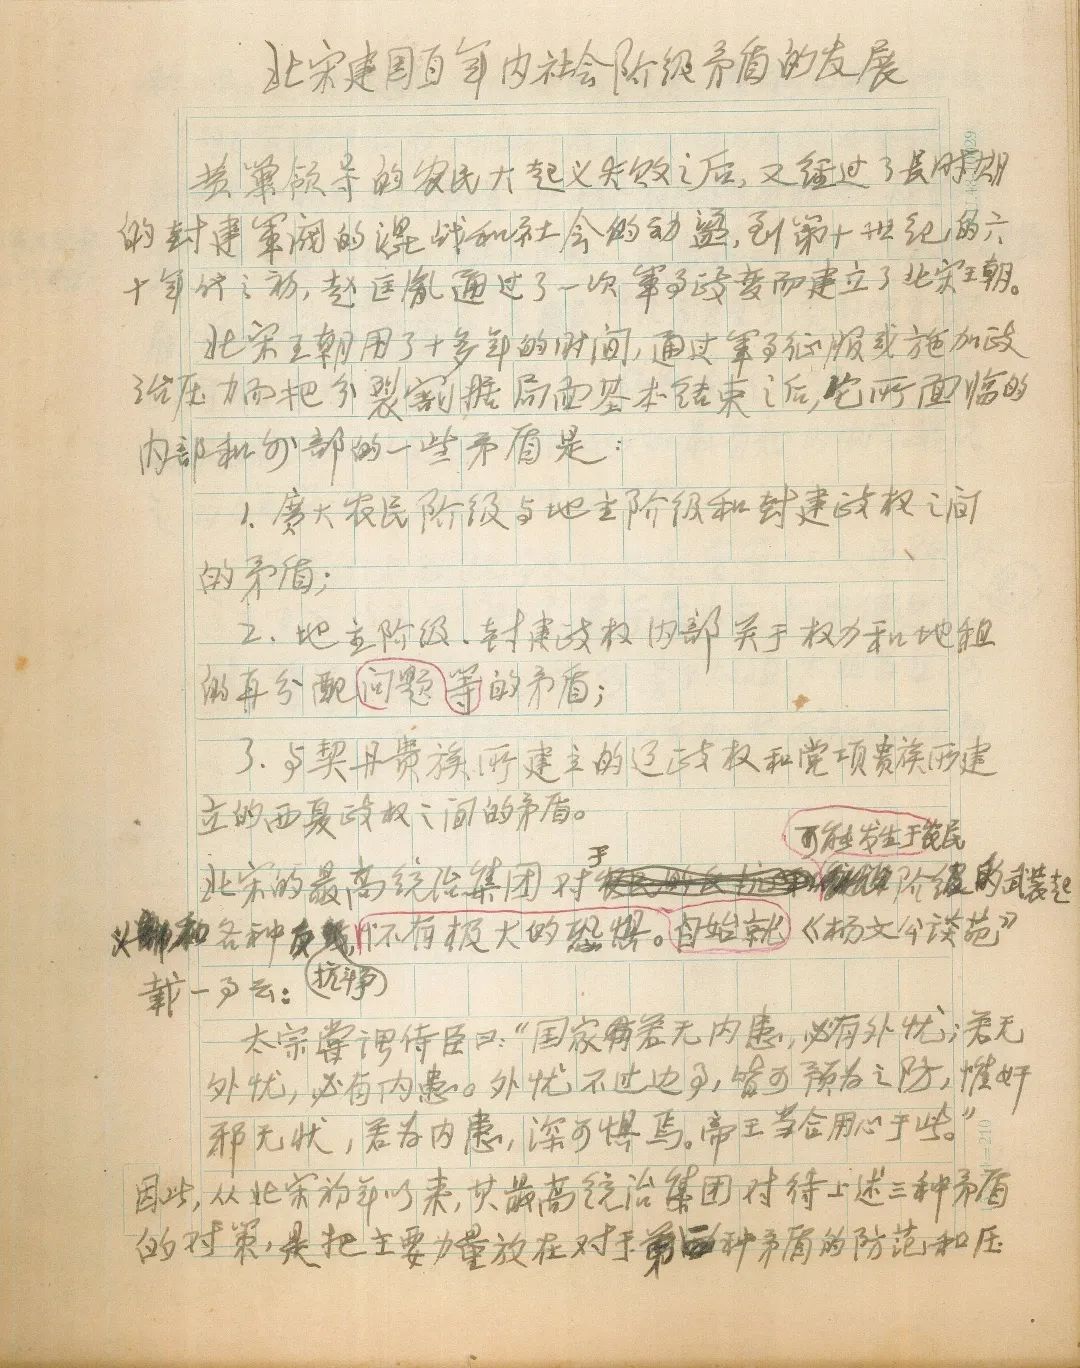 北宋建国百年内社会阶级矛盾的发展
黄巢领导的农民大起义失败之后，又经过了长时期
的封建军阀的混战和社会的动盪，到第十世纪的六
十年代之初，赵匡胤通过了一次军事政变而建立了北宋王朝。
北宋王朝用了十多年的时间，通过军事征服或施加政
治压力而把分裂割据局面基本结束之后，它所面临的
内部和外部的一些矛盾是：
1. 廣大农民阶级与地主阶级和封建政权之间
的矛盾；
2. 地主阶级、封建政权内部关于权力和地租
的再分配问题等的矛盾；
3. 与契丹贵族所建立的辽政权和党项贵族所建
立的西夏政权之间的矛盾。
可能发生于农民
北宋的最高统治集团对于阶级的武装起
义和各种怀有极大的恐惧。自始就《杨文公谈苑》
抗争
载一事云：
太宗嘗谓侍臣曰：“国家若无内患，必有外忧；若无
外忧，必有内患。外忧不过边事，皆可预为之防，惟奸
邪无状，若为内患，深可惧焉。帝王当合用心于此。”
因此，从北宋初年以来，其最高统治集团对待上述三种矛盾
的对策，是把主要力量放在对于种矛盾的防范和压